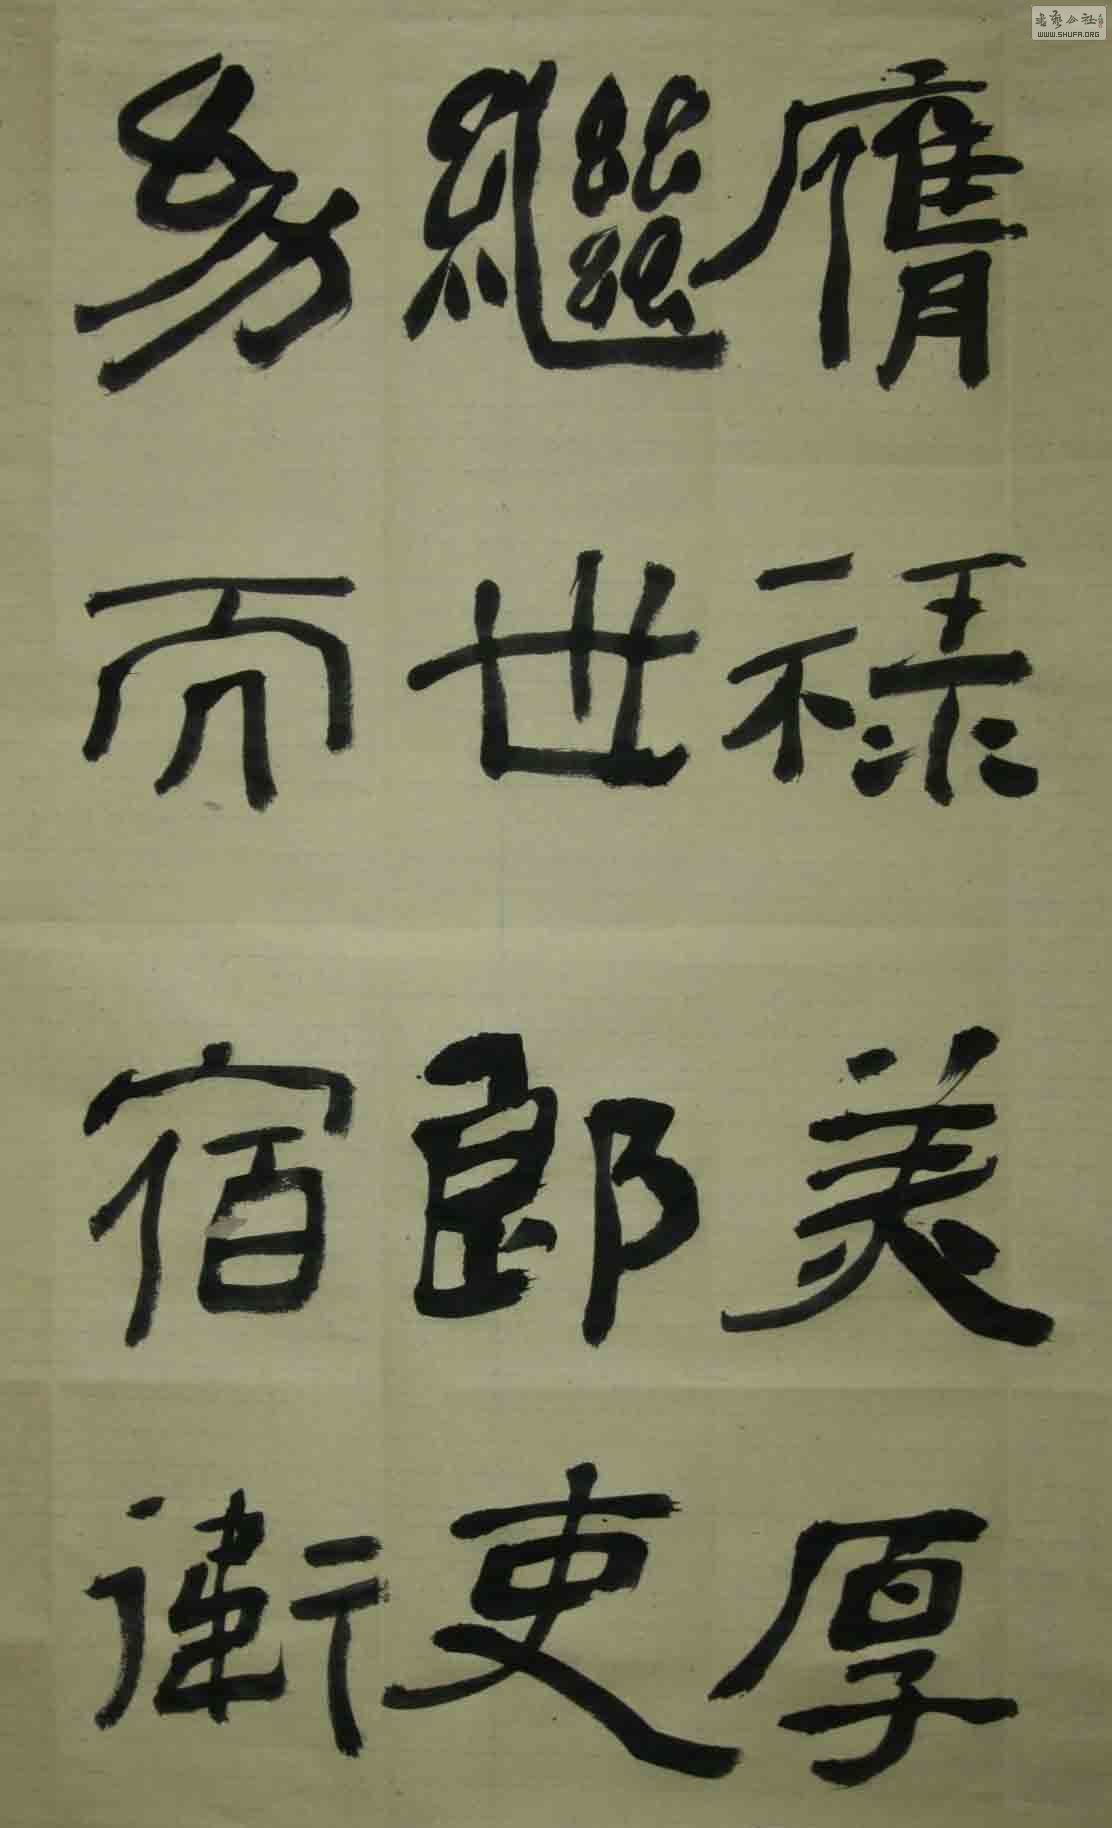 膺禄美厚
繼世郎吏
幼而宿衛
书艺公社
WWW.SHUFA.ORG